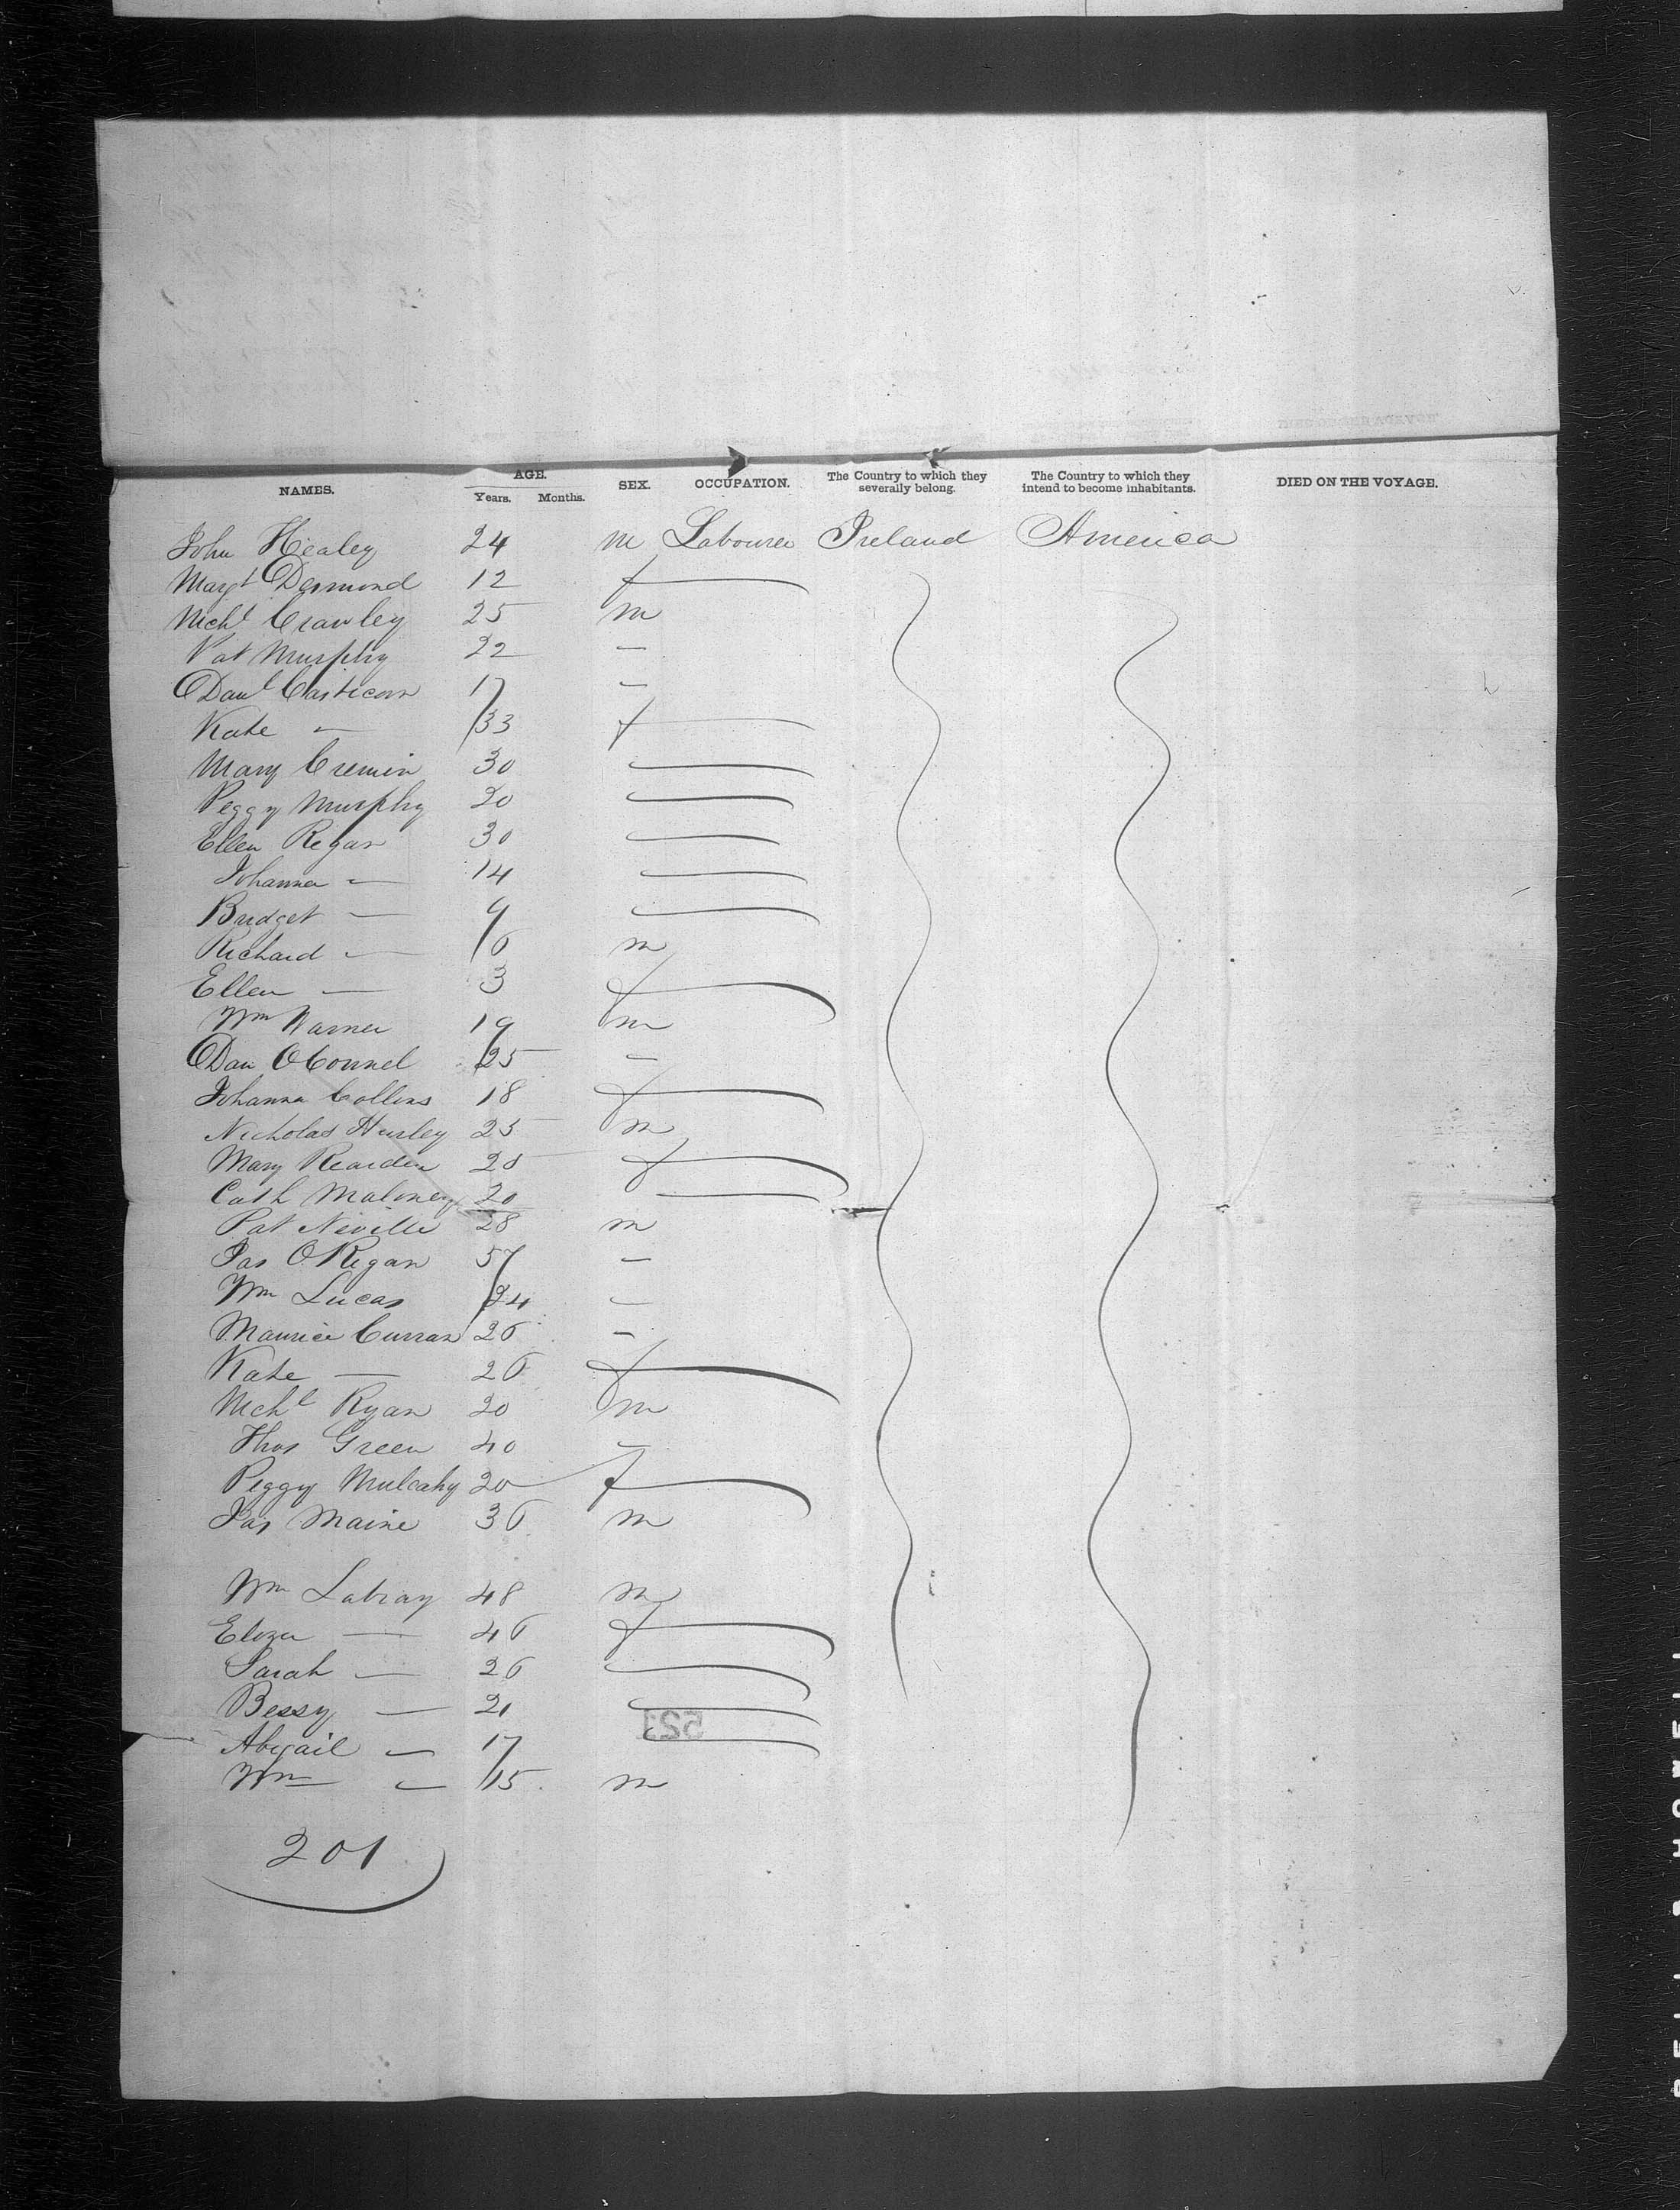 NAMES. AGE. Years. Months. SEX. OCCUPATION. The Country to which they severally belong. The Country to which they intend to become inhabitants. DIED ON THE VOYAGE.
John Healey 24 m Labourer Ireland America
Margt Desmond 12 f
Michl Crawley 25 m
Pat Murphy 22 —
Danl Casticom 17 —
Kate — 33 f
Mary Cremin 30
Peggy Murphy 20
Ellen Regan 30
Johanna — 14
Bridget — 9
Richard — 6 m
Ellen — 3 f
Wm Warner 19 m
Dan OConnel 25 —
Johanna Collins 18 f
Nicholas Hurley 25 m
Mary Rearden 20 f
Cath Maloney 20
Pat Neville 28 m
Jas O.Regan 57 —
Wm Lucas 24 —
Maurice Curran 26 —
Kate — 26 f
Michl Ryan 20 m
Thos Green 40 —
Peggy Mulcahy 20 f
Jas Maine 36 m
Wm Labray 48 m
Eliza — 46 f
Sarah — 26
Bessy — 21
Abigail — 17
Wm — 15 m
201